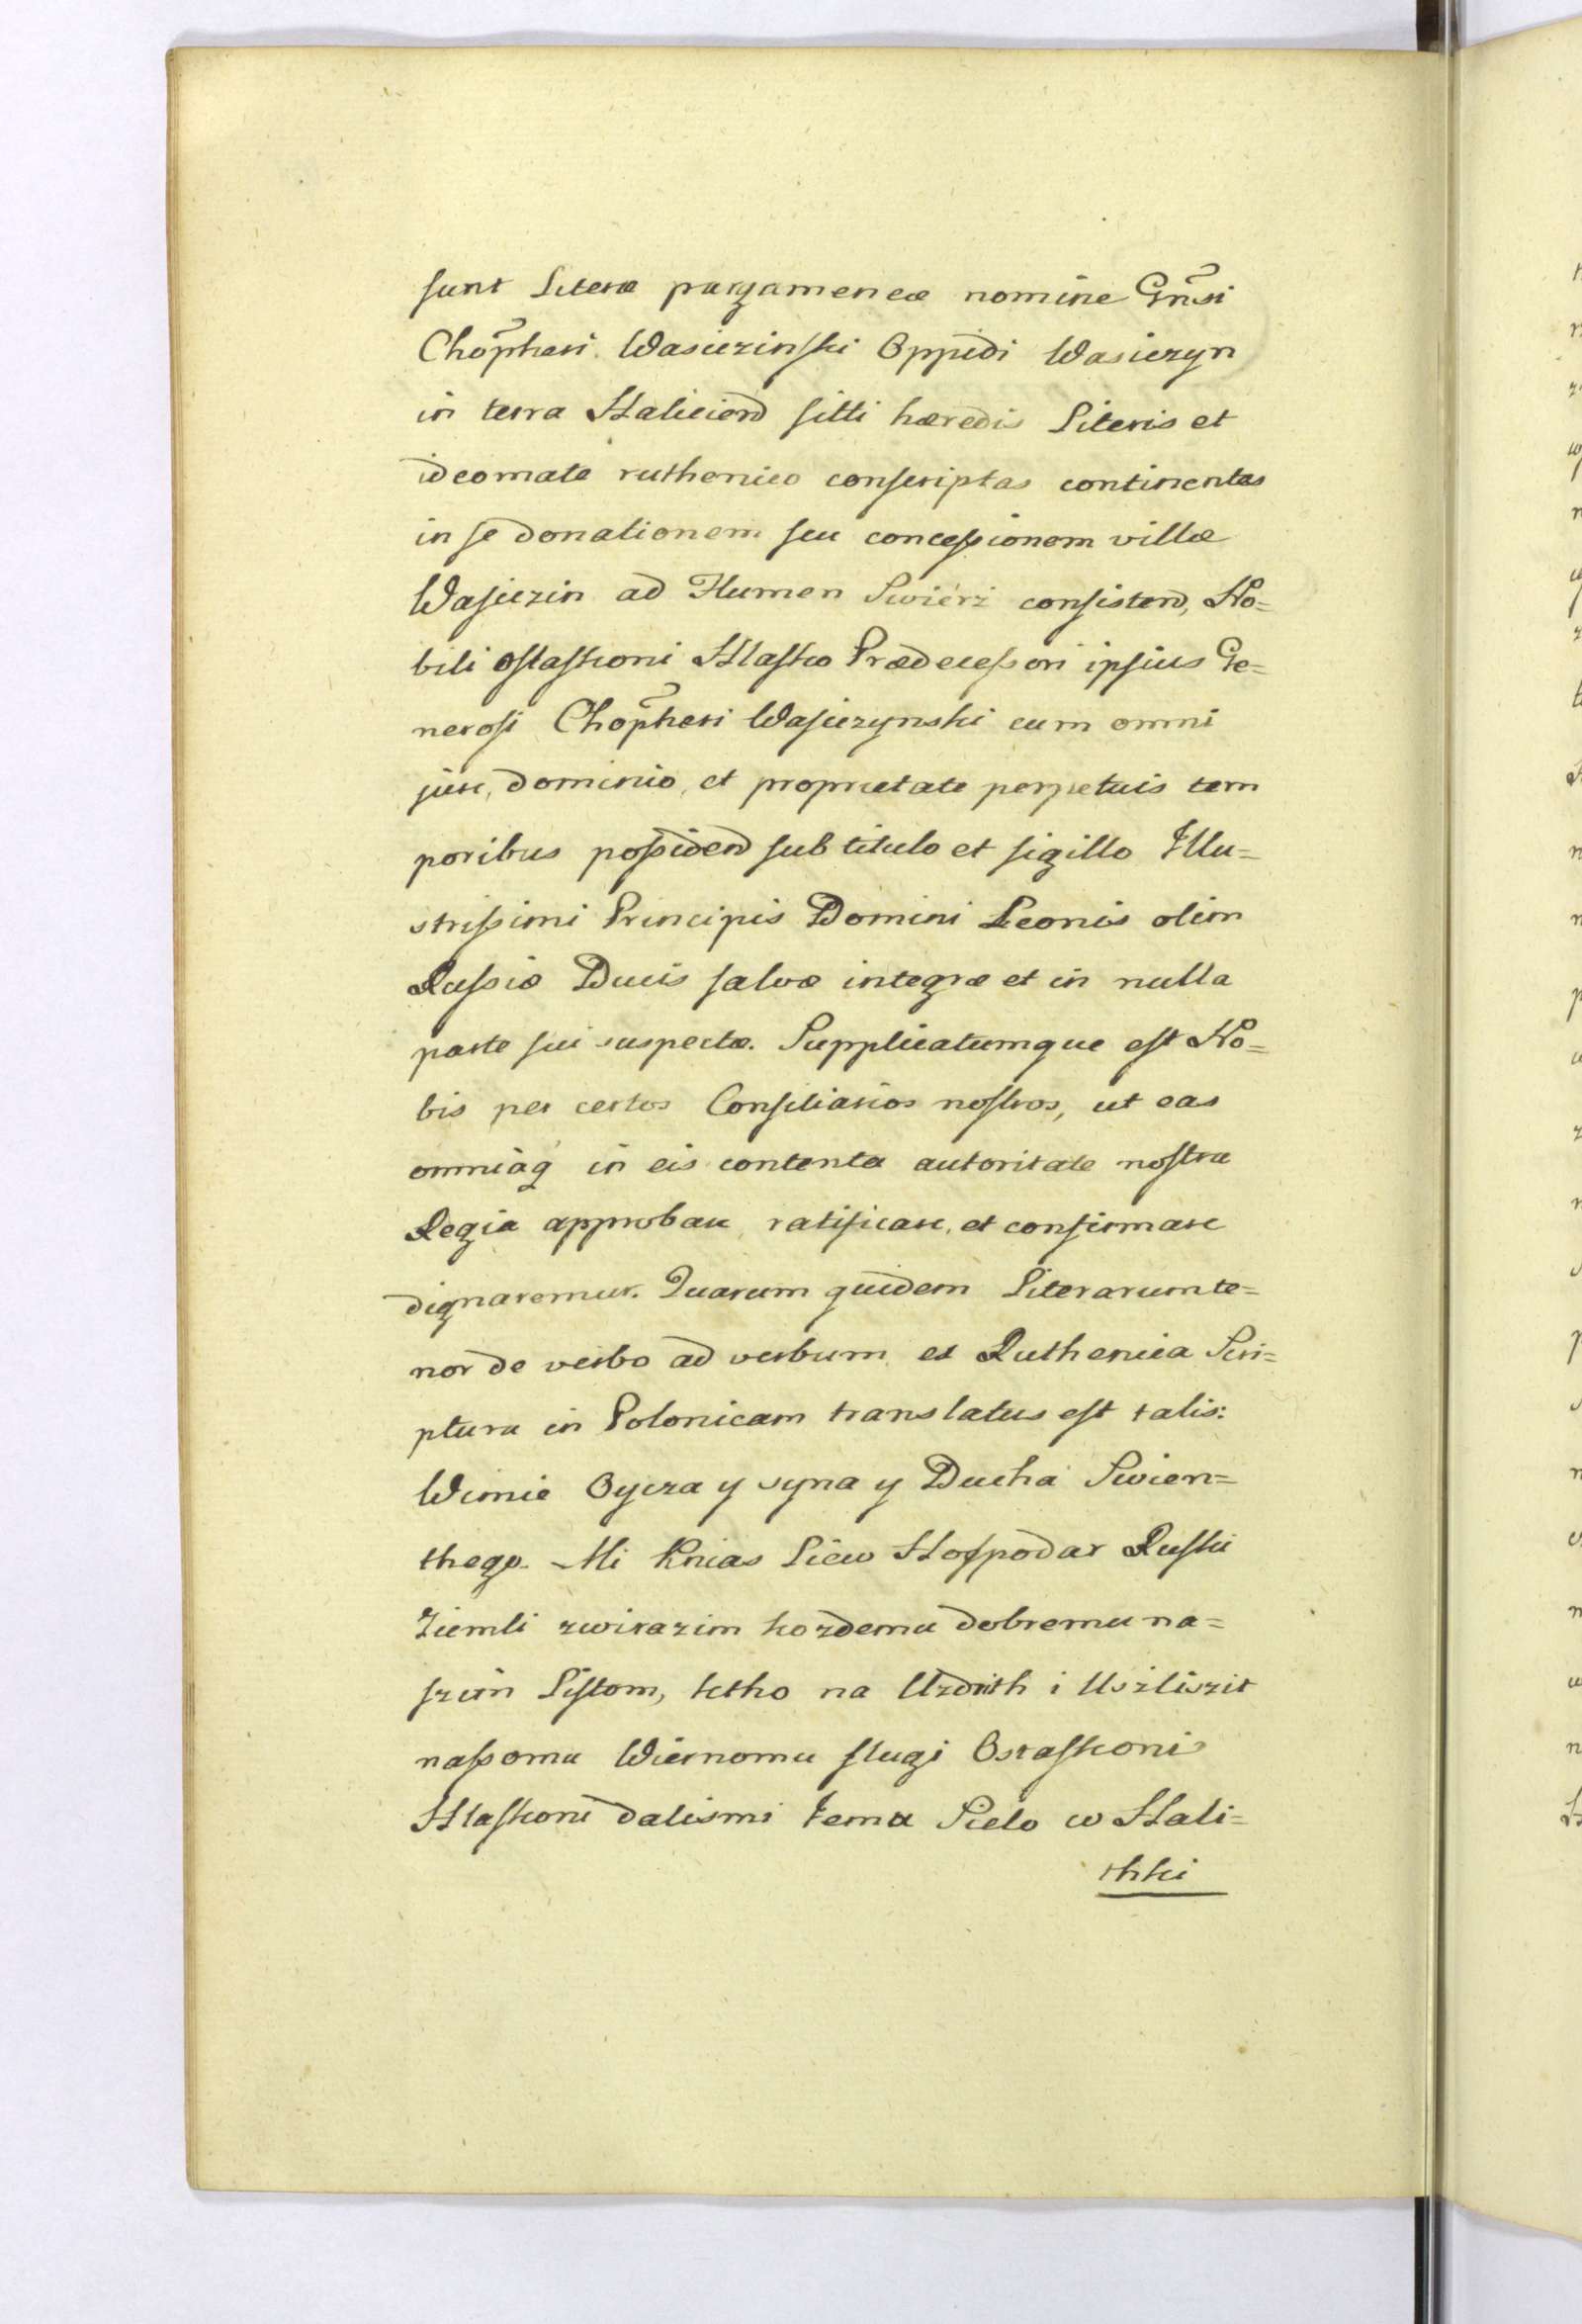 sunt Literæ pargameneæ nomine Gñsi
Chõpheri Wasiczinski Oppidi Wasiczyn
in terra Haliciend sitti hæredis Literis et
ideomate ruthenico conscriptas continentes
in se donationem seu concessionem villæ
Wasiczin ad Flumen Swierz consistend, No=
bili Ostaskoni Hlasko Prædecessori ipsius Ge=
nerosi Chõpheri Wasiczynski cum omni
jure, dominio, et proprietate perpetuis tem
poribus possidend sub titulo et sigillo Illu=
strissimi Principis Domini Leonis olim
Russiæ Ducis salvæ integræ et in nulla
parte sui suspectæ. Supplicatumque est No=
bis per certos Consiliarios nostros, ut eas
omniaq́ in eis contenta autoritate nostra
Regia approbare, ratificare, et confirmare
dignaremur. Quarum quidem Literarum te=
nor de verbo ad verbum ex Ruthenica Scri=
ptura in Polonicam translatus est talis:
Wimie Oycza y syna y Ducha Swien=
thego. Mi Knias Liew Hospodar Ruski
Ziemli zwirazim kozdemu dobremu na=
szim Listom, ktho na Uzdrith i Uszliszit
nassomu Wiernomu slugi Ostaskoni
Hlaskoni dalismi temu Sielo w Hali=
thki